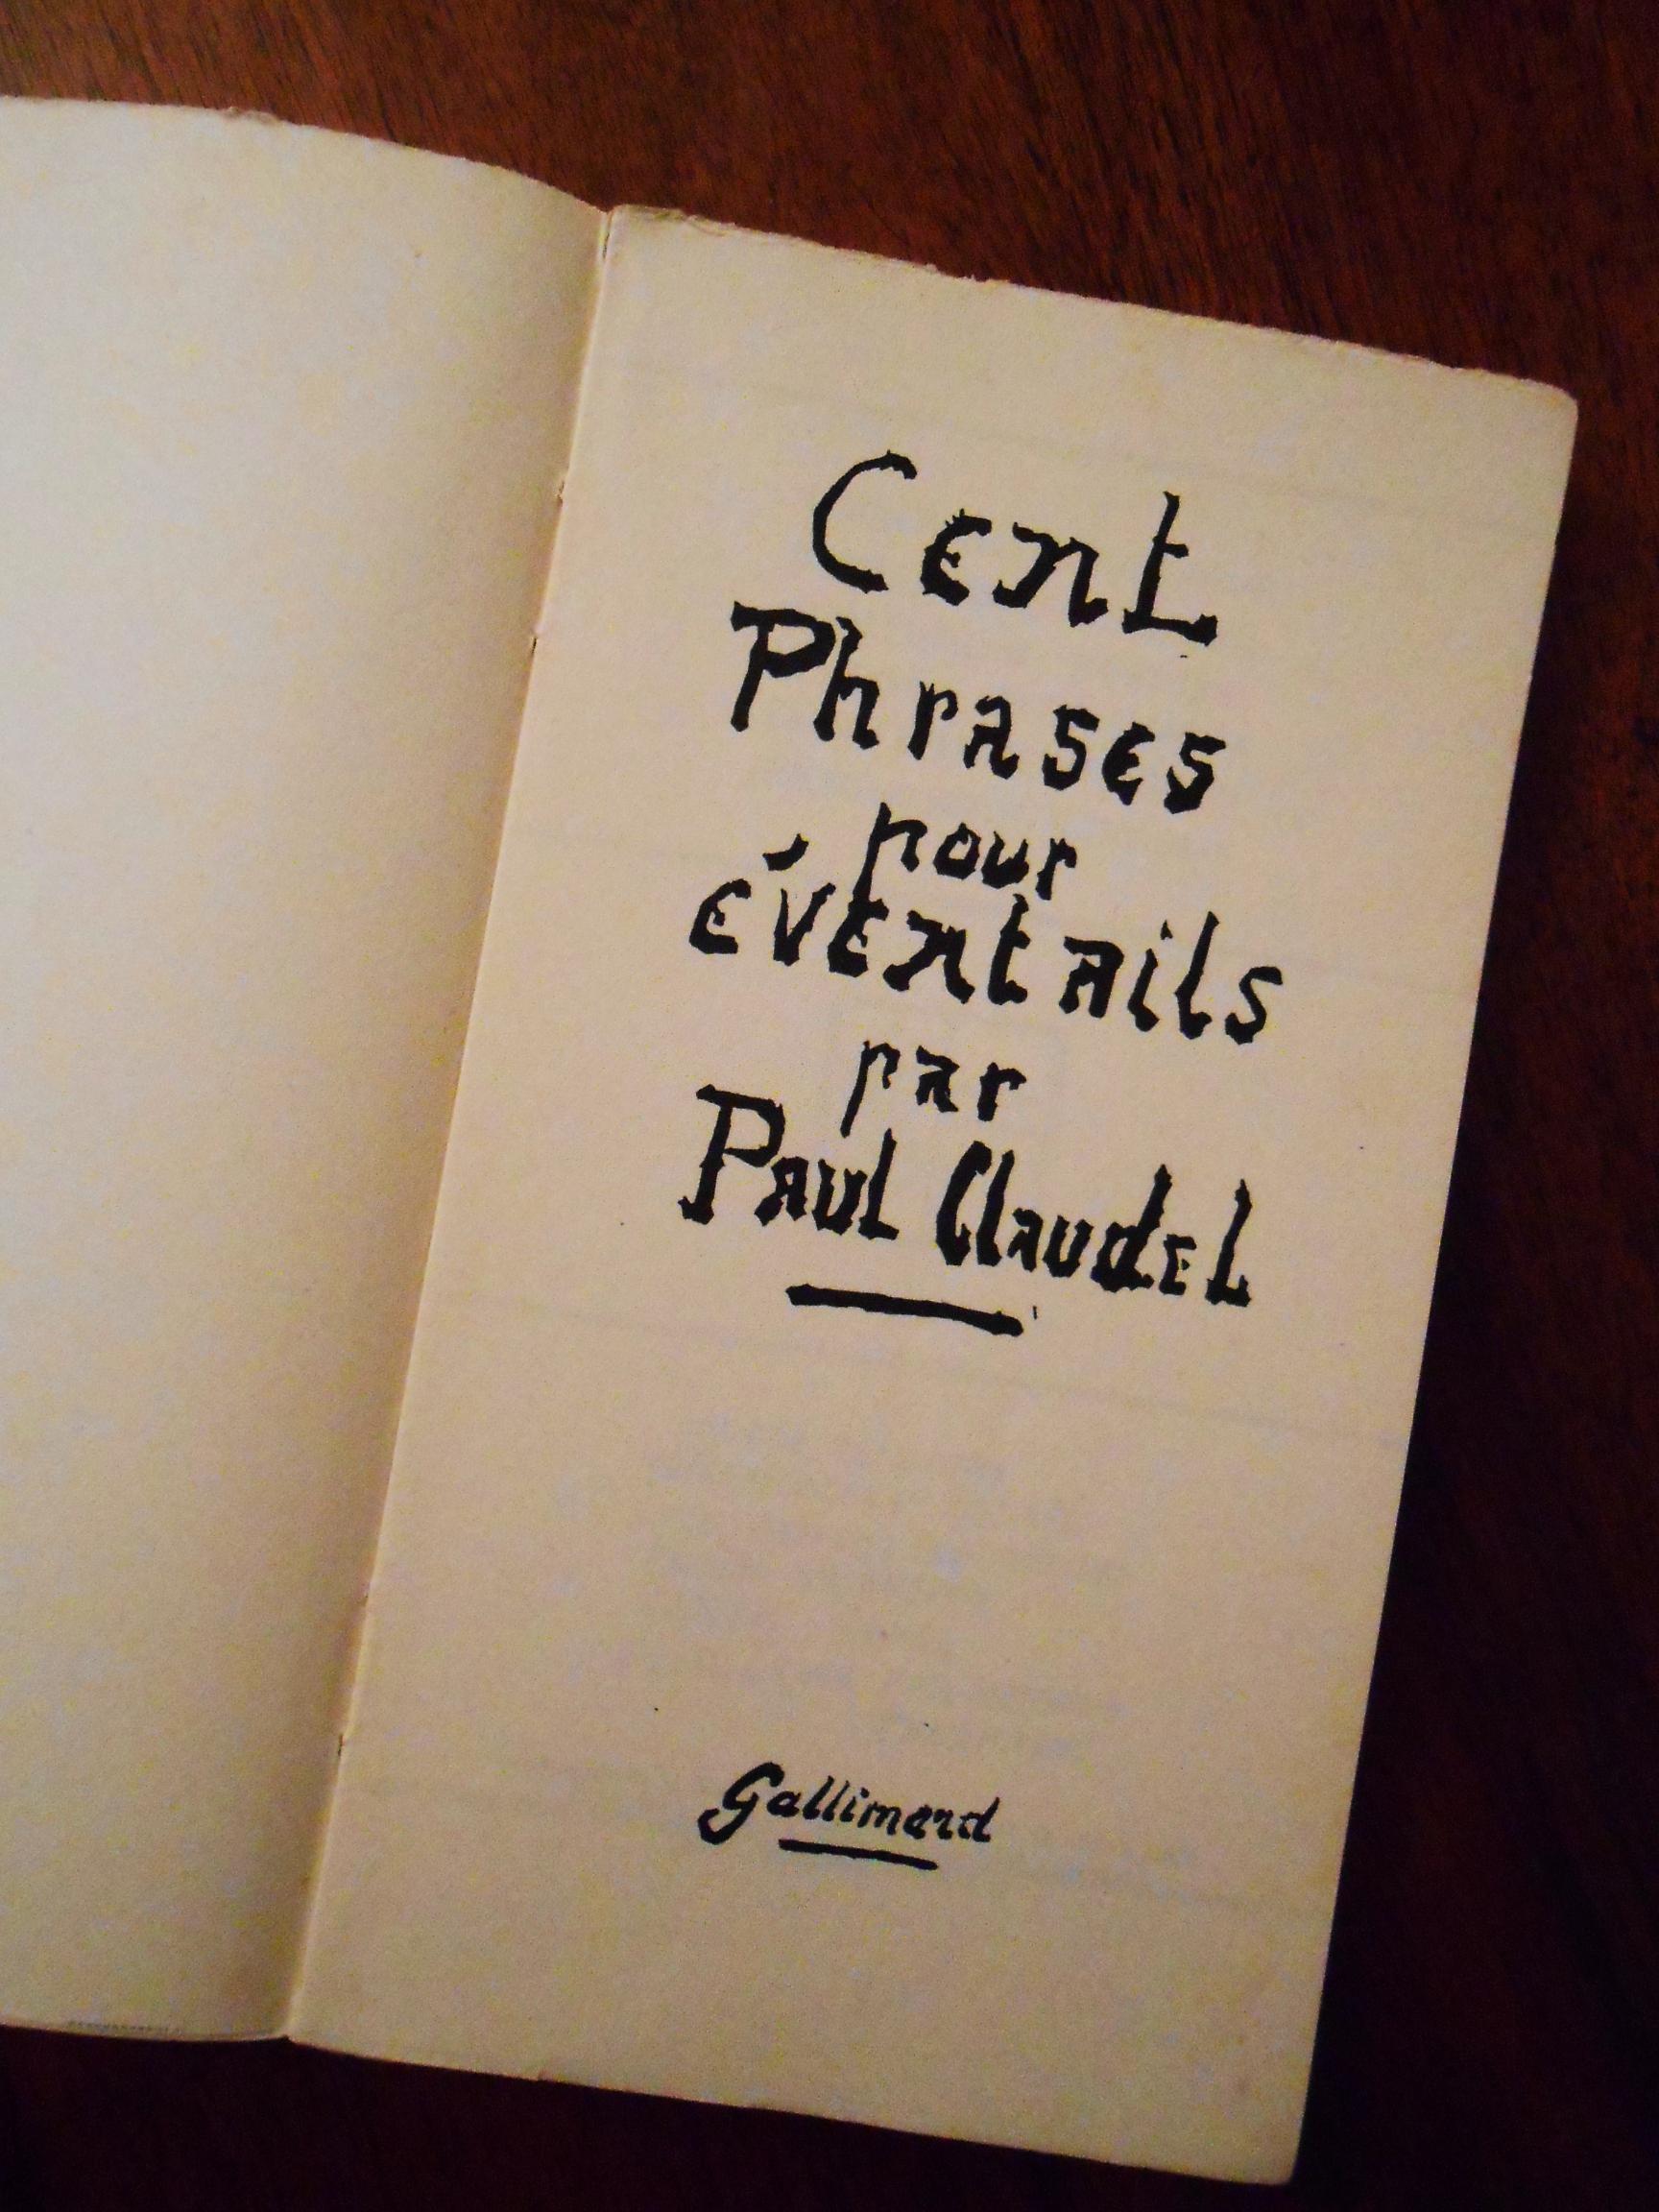 Cent
Phrases
pour
éventails
par
Paul Claudel
Gallimard